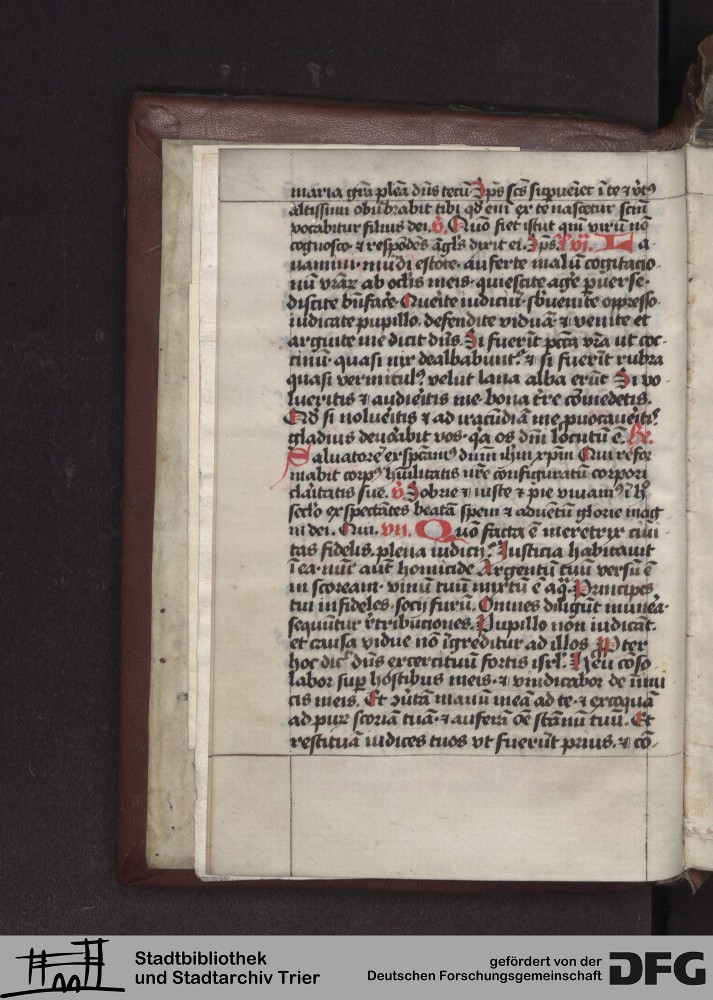 maria gr̄a plea dn̄s tecū Sp̄s sc̄s supueiet ī te ⁊ v̓tꝰ
altissimi obūbrabit tibi qd̓ em̄ ex te nascetur sc̄m
vocabitur filius dei. v̓. Quō fiet istut qm̄ virū nō
cognosco. ⁊ respōdēs āgl̓s dixit ei. Sp̄s. vj. La
uamini. mūdi estote. auferte malū cogitacio
nū vrāꝝ ab oclis meis. quiescite age̓ puerse.
discite bn̄face. Querite iudiciū. sbuenite oppresso
iudicate pupillo. defendite viduā. ⁊ venite et
arguite me dicit dn̄s. Si fuerīt pctā vrā ut coc
cinū. quasi nix dealbabunt. ⁊ si fuerīt rubra
quasi vermiculꝰ velut lana alba erūt Si vo
lueritis ⁊ audieitis me. bona tr̄e comedetis.
Qd̓ si noluēitis ⁊ ad iracūdiā me puocaueitꝭ
gladius deuorabit vos. qa os dn̄i locutū ē. Re.
Saluatorē exspctamꝰ dnm̄ ihm̄ xpm̄ Qui refor
mabit corpꝰ hūilitatis nr̄e cōfiguratū corpori
claritatis sue. v̓. Sobrie ⁊ iuste ⁊ pie viuamꝰ ī h̓
sclo exspectātes beatā spem ⁊ aduentū glorie mag
ni dei. Qui. vii. Quō facta ē meretrix ciui
tas fidelis. plena iudicii. Iusticia habitauit
ī ea. nūc aut̄ homicide Argentū tuū versū ē
in scoream. vinū tuū mixtū ē aq̄. Principes
tui infideles. socii furū. Omnes diligūt munēa.
sequūtur r̓tribuciones. Pupillo nōn iudicāt.
et causa vidue nō īgreditur ad illos Pp̄ter
hoc dic̓ dn̄s exercituū fortis isrl̓. Heu cōso
labor sup hostibus meis. ⁊ vindicabor de īimi
cis meis. Et ꝯūtā manū meā ad te. ⁊ excoquā
ad puꝝ scoriā tuā. ⁊ auferā oē stānū tuū. Et
restituā iudices tuos vt fuerūt prius. ⁊ cō
Stadtbibliothek
und Stadtarchiv Trier
gefördert von der
Deutschen Forschungsgemeinschaft
DFG